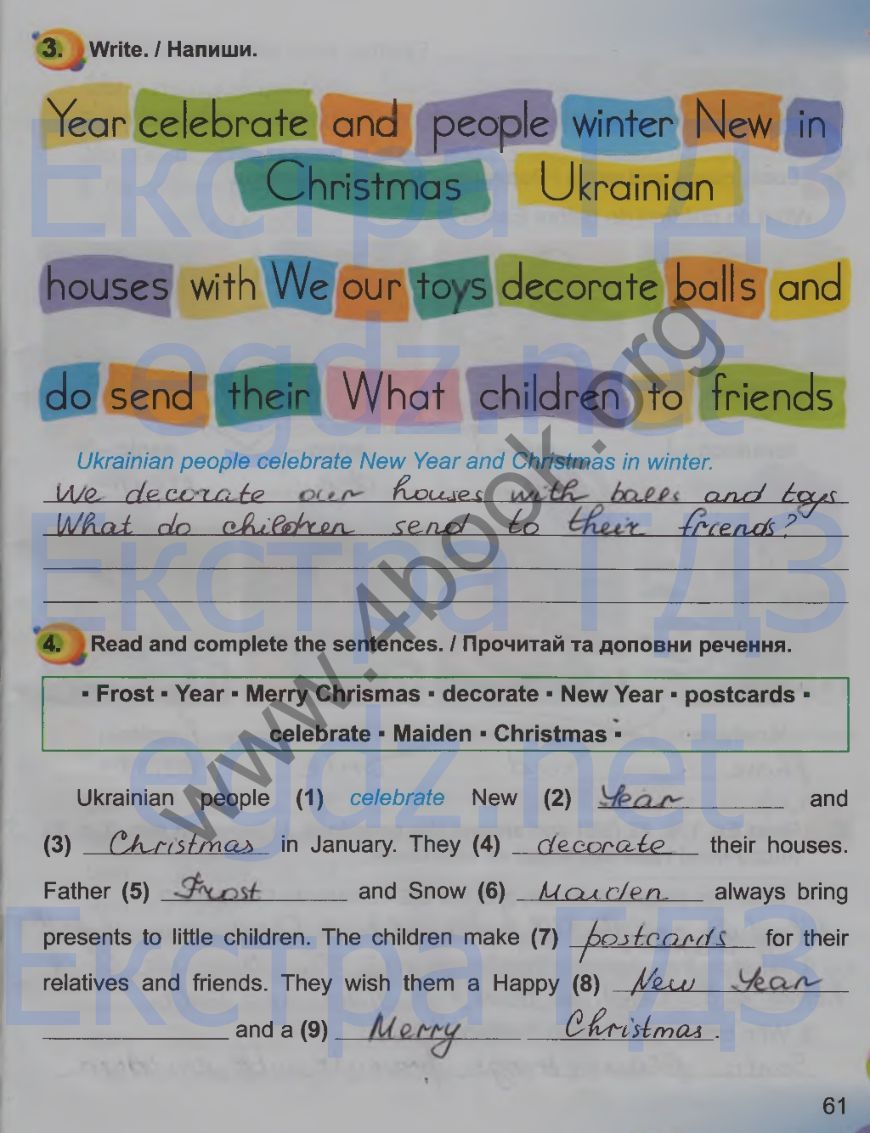 3. Write. / Напиши.
Year celebrate and people winter New in
Christmas Ukrainian
houses with We our toys decorate balls and
do send their What children to friends
Ukrainian people celebrate New Year and Christmas in winter.
We decorate our houses with balls and toys
What do children send to their friends?
4. Read and complete the sentences. / Прочитай та доповни речення.
▪ Frost ▪ Year ▪ Merry Chrismas ▪ decorate ▪ New Year ▪ postcards ▪
celebrate ▪ Maiden ▪ Christmas ▪
Ukrainian people (1) celebrate New (2) Year and
(3) Christmas in January. They (4) decorate their houses.
Father (5) Frost and Snow (6) Maiden always bring
presents to little children. The children make (7) postcards for their
relatives and friends. They wish them a Happy (8) New Year
and a (9) Merry Christmas.
61
Екстра ГДЗ
egdz.net
Екстра ГДЗ
egdz.net
Екстра ГДЗ
www.4book.org